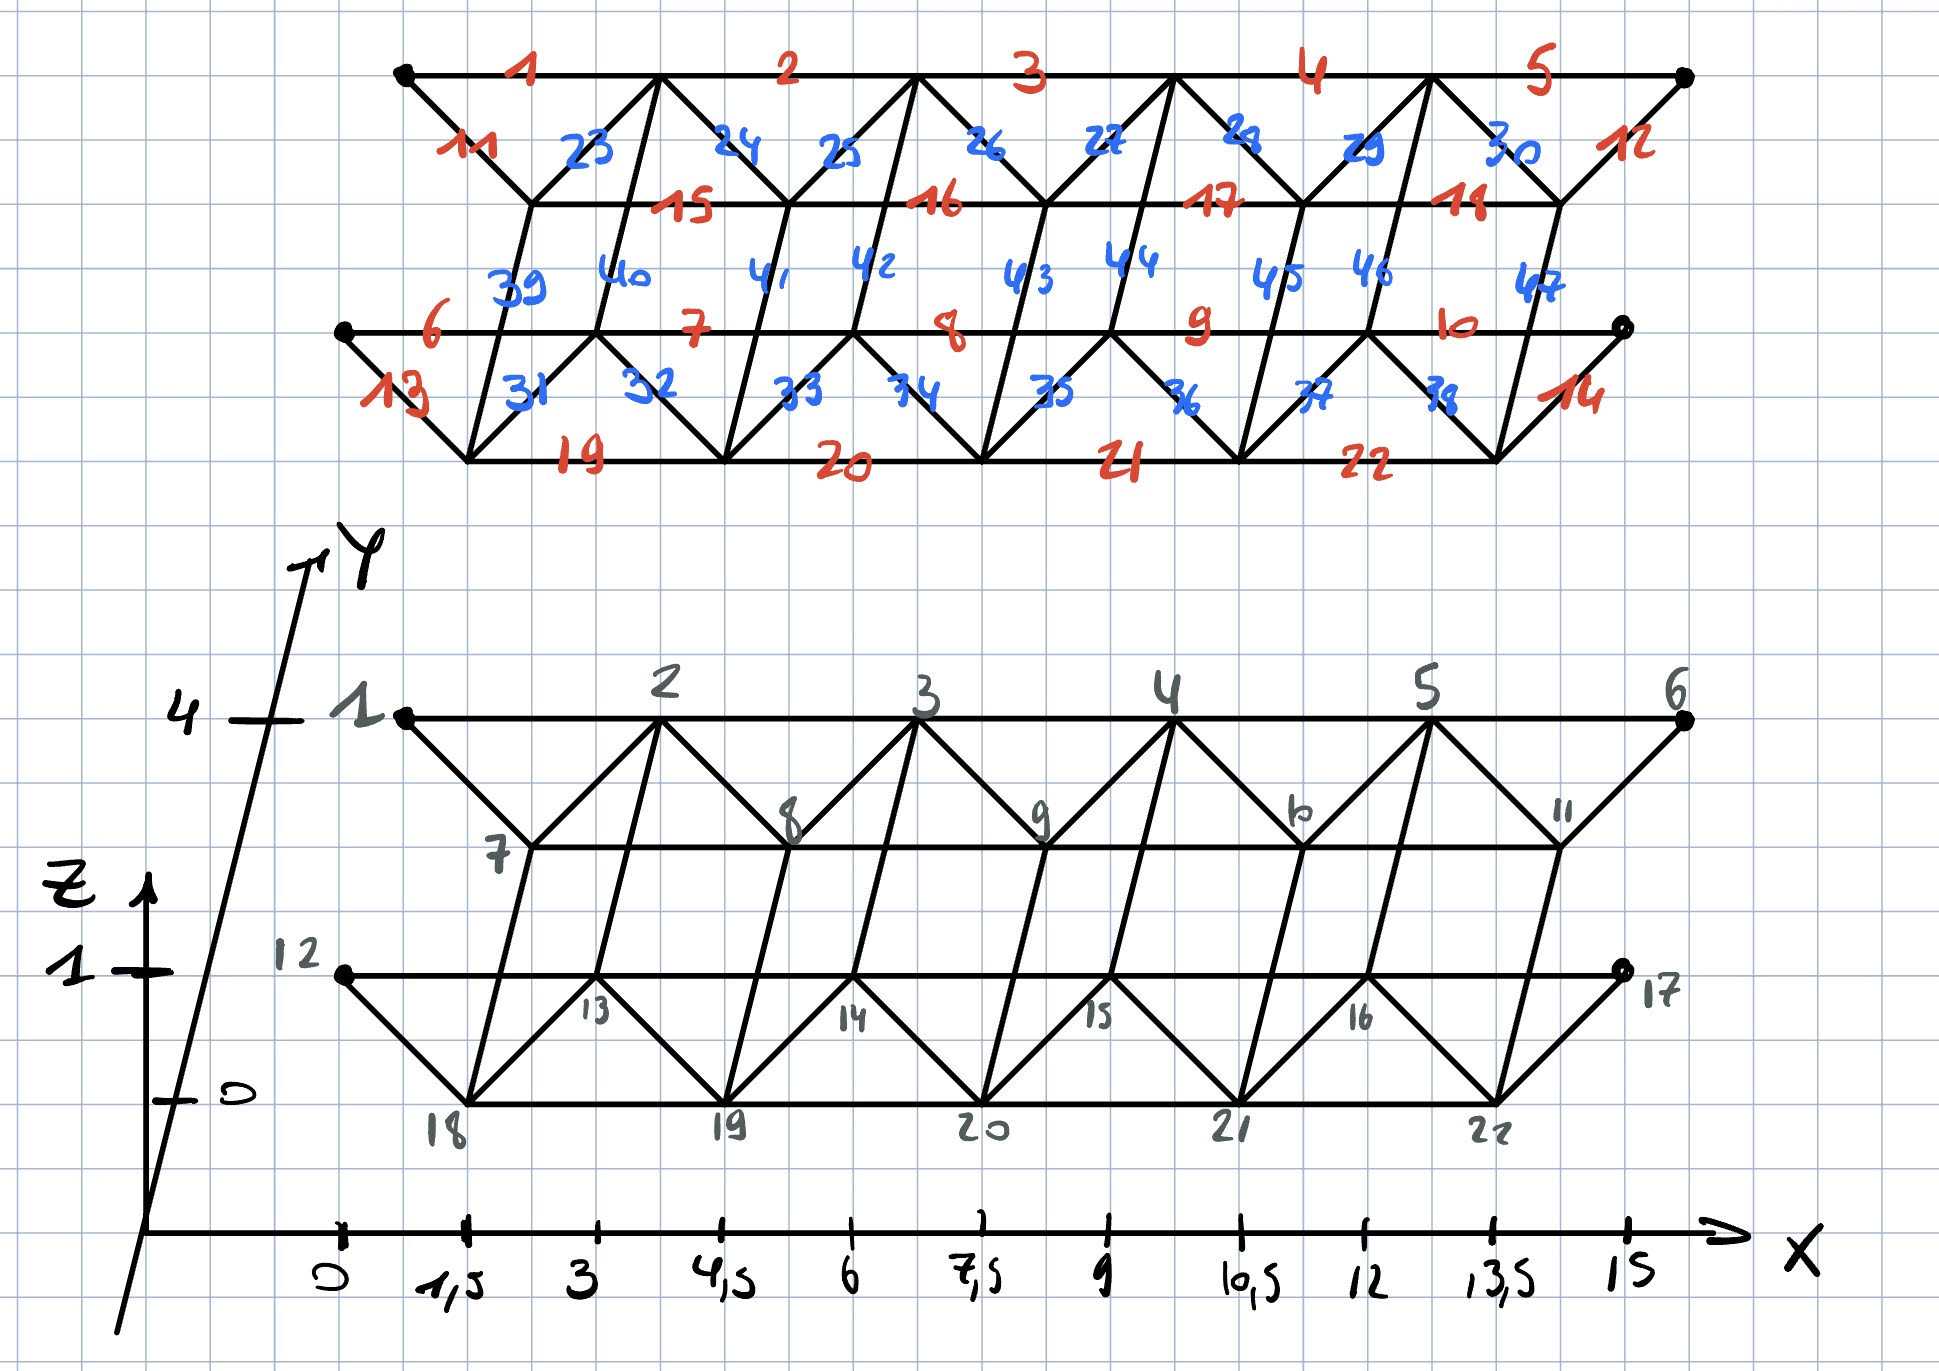 1 2 3 4 5
11 23 24 25 26 27 28 29 30 12
15 16 17 18
39 40 41 42 43 44 45 46 47
6 7 8 9 10
13 31 32 33 34 35 36 37 38 14
19 20 21 22
Y
4 1 2 3 4 5 6
7 8 9 10 11
Z
1 12 13 14 15 16 17
0
18 19 20 21 22
0 1,5 3 4,5 6 7,5 9 10,5 12 13,5 15 X